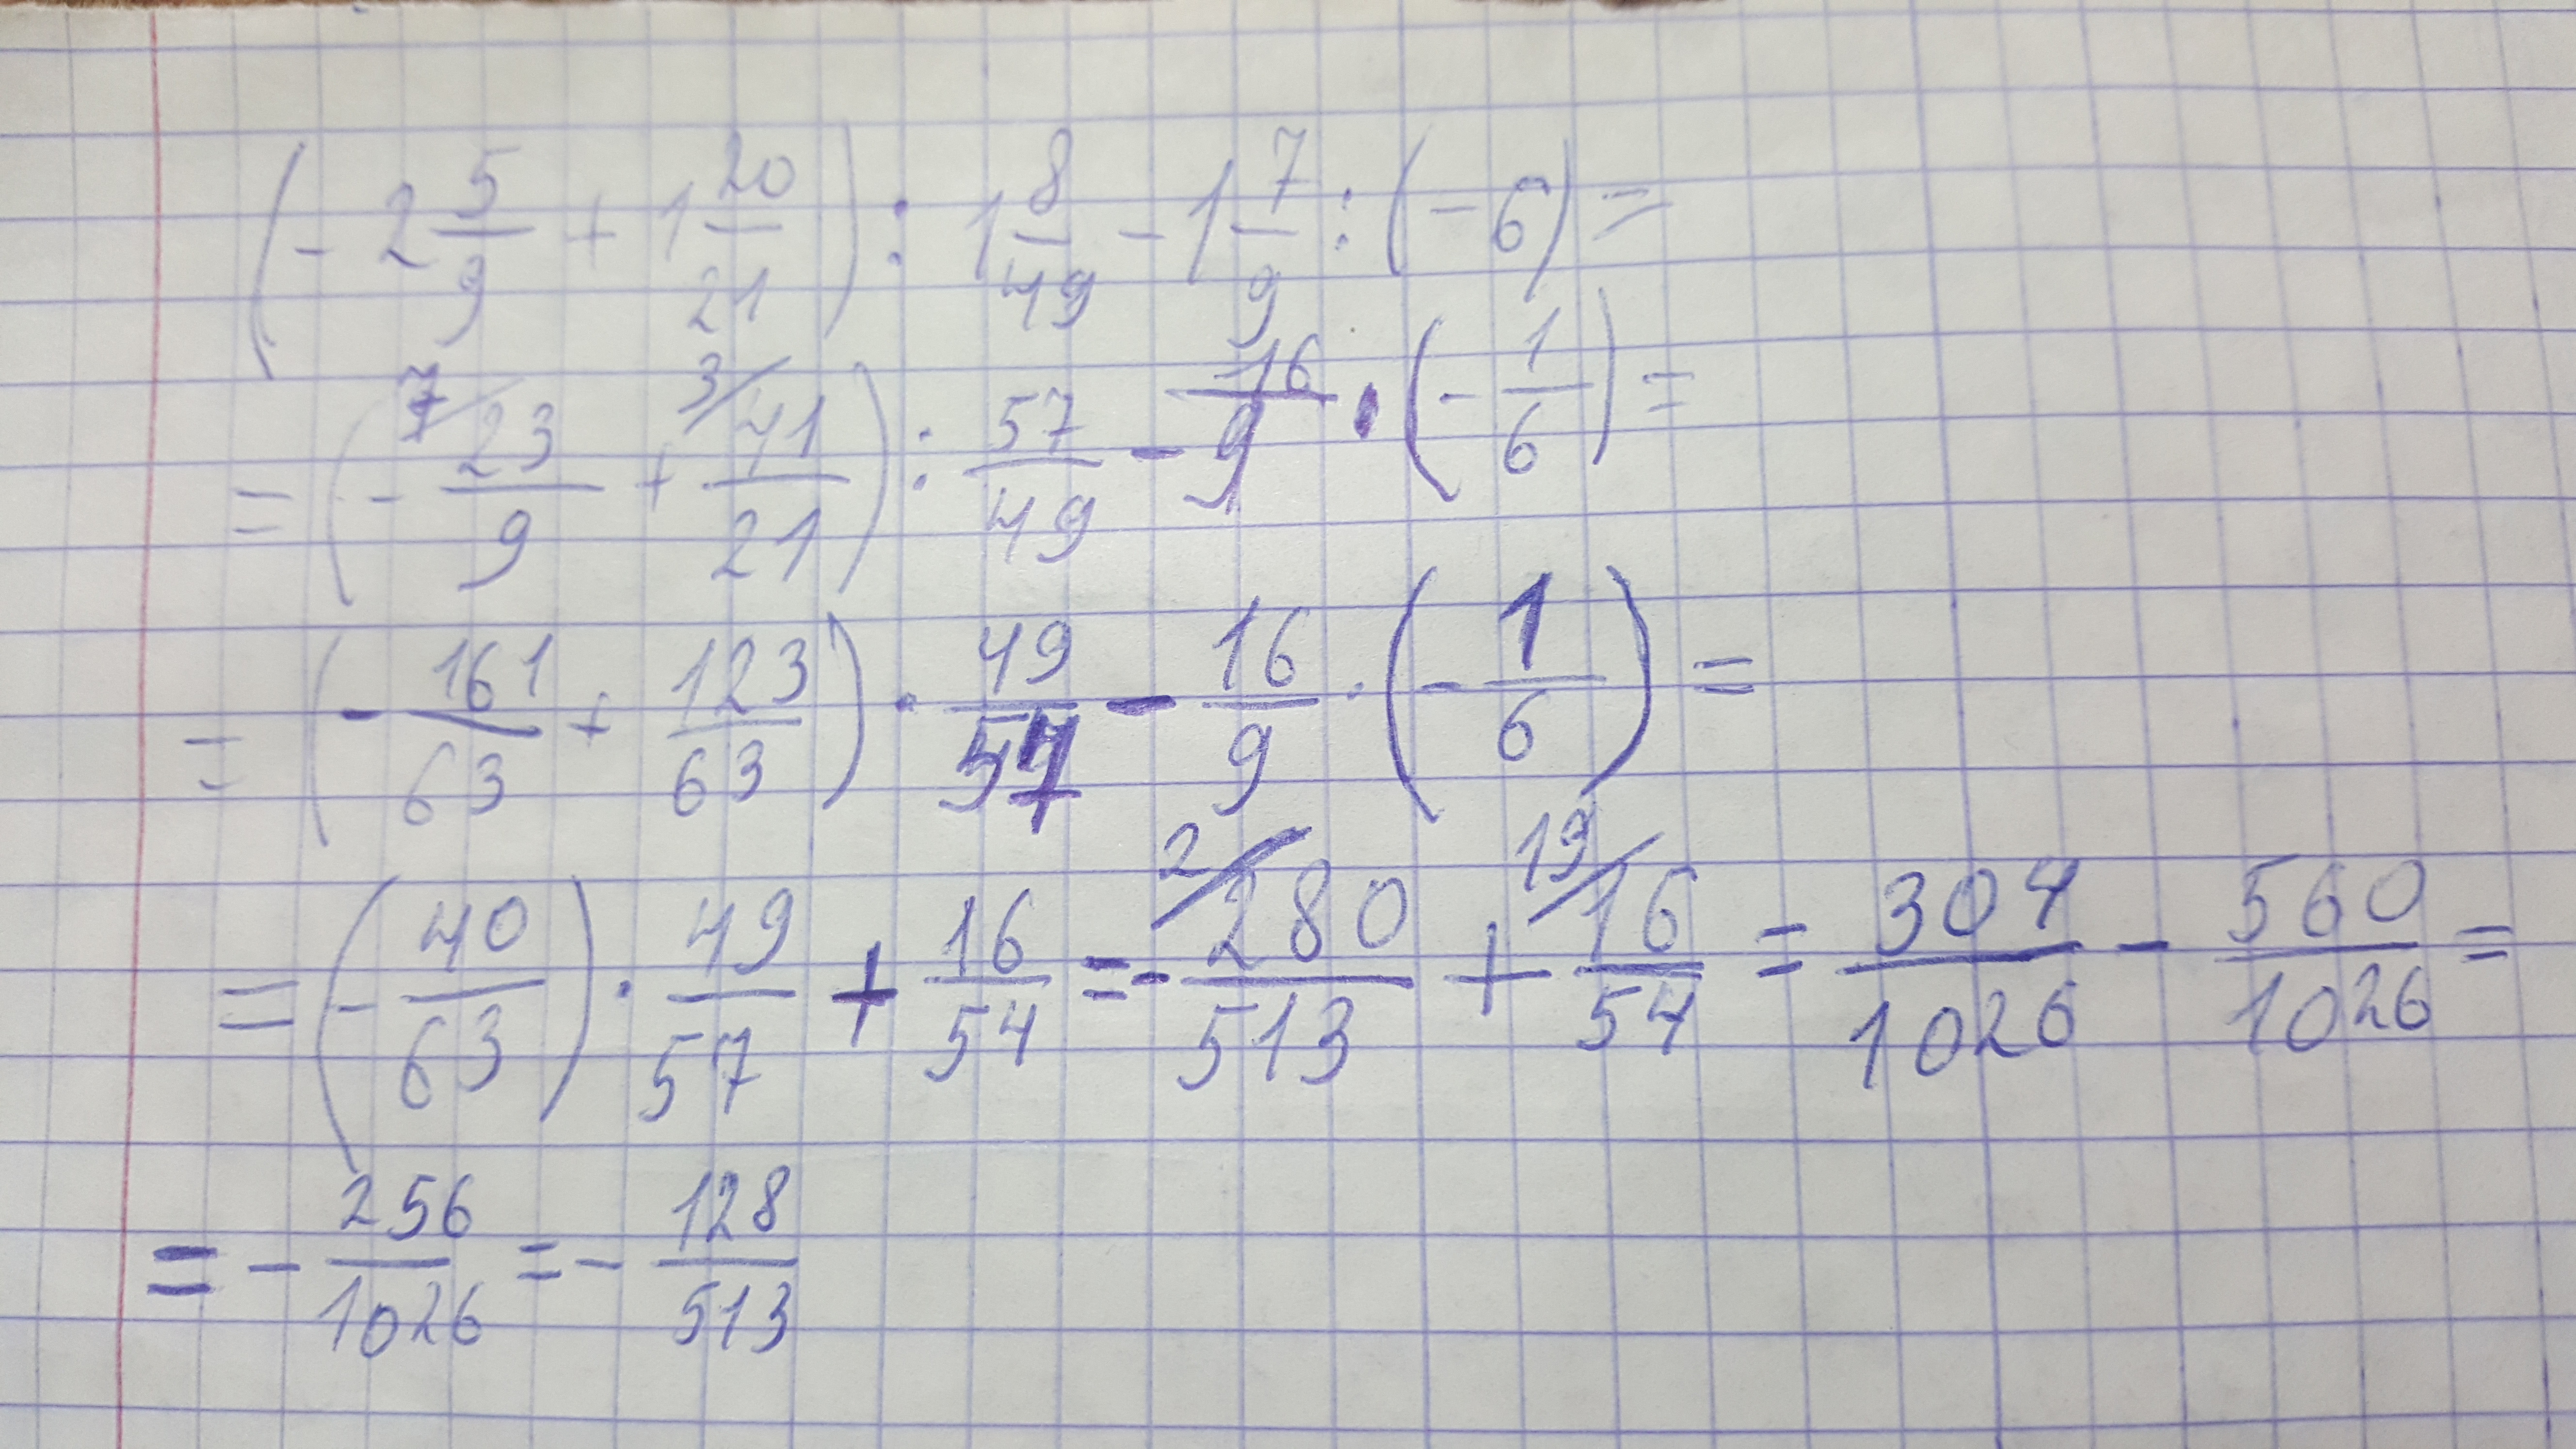 (- 2 5/9 + 1 20/21) : 1 8/49 - 1 7/9 : (-6) =
= (- 7/ 23/9 + 3/ 41/21) : 57/49 - 16/9 · (- 1/6) =
= (- 161/63 + 123/63) · 49/57 - 16/9 · (- 1/6) =
= (- 40/63) · 49/57 + 16/54 = - 2/ 280/513 + 19/ 16/54 = 304/1026 - 560/1026 =
= - 256/1026 = - 128/513